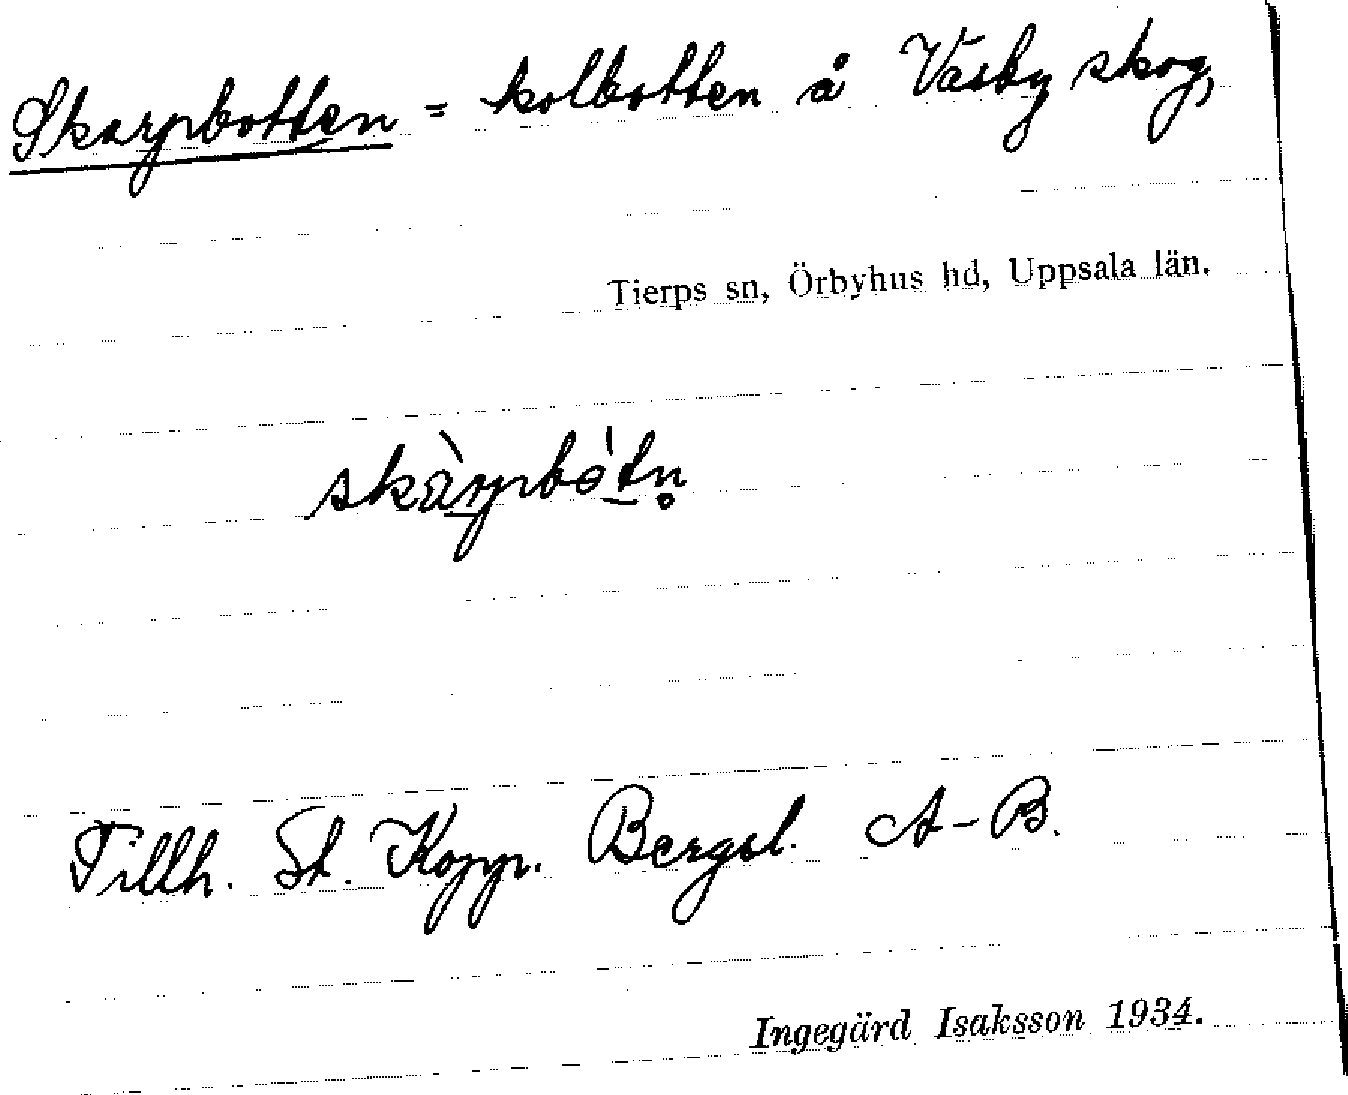 Skarpbotten = kolbotten å Väsby skog,
Tierps sn, Örbyhus hd, Uppsala län.
skàrpbó̀tn̥
Tillh. St. Kopp. Bergsl. A-B.
Ingegärd Isaksson 1934.